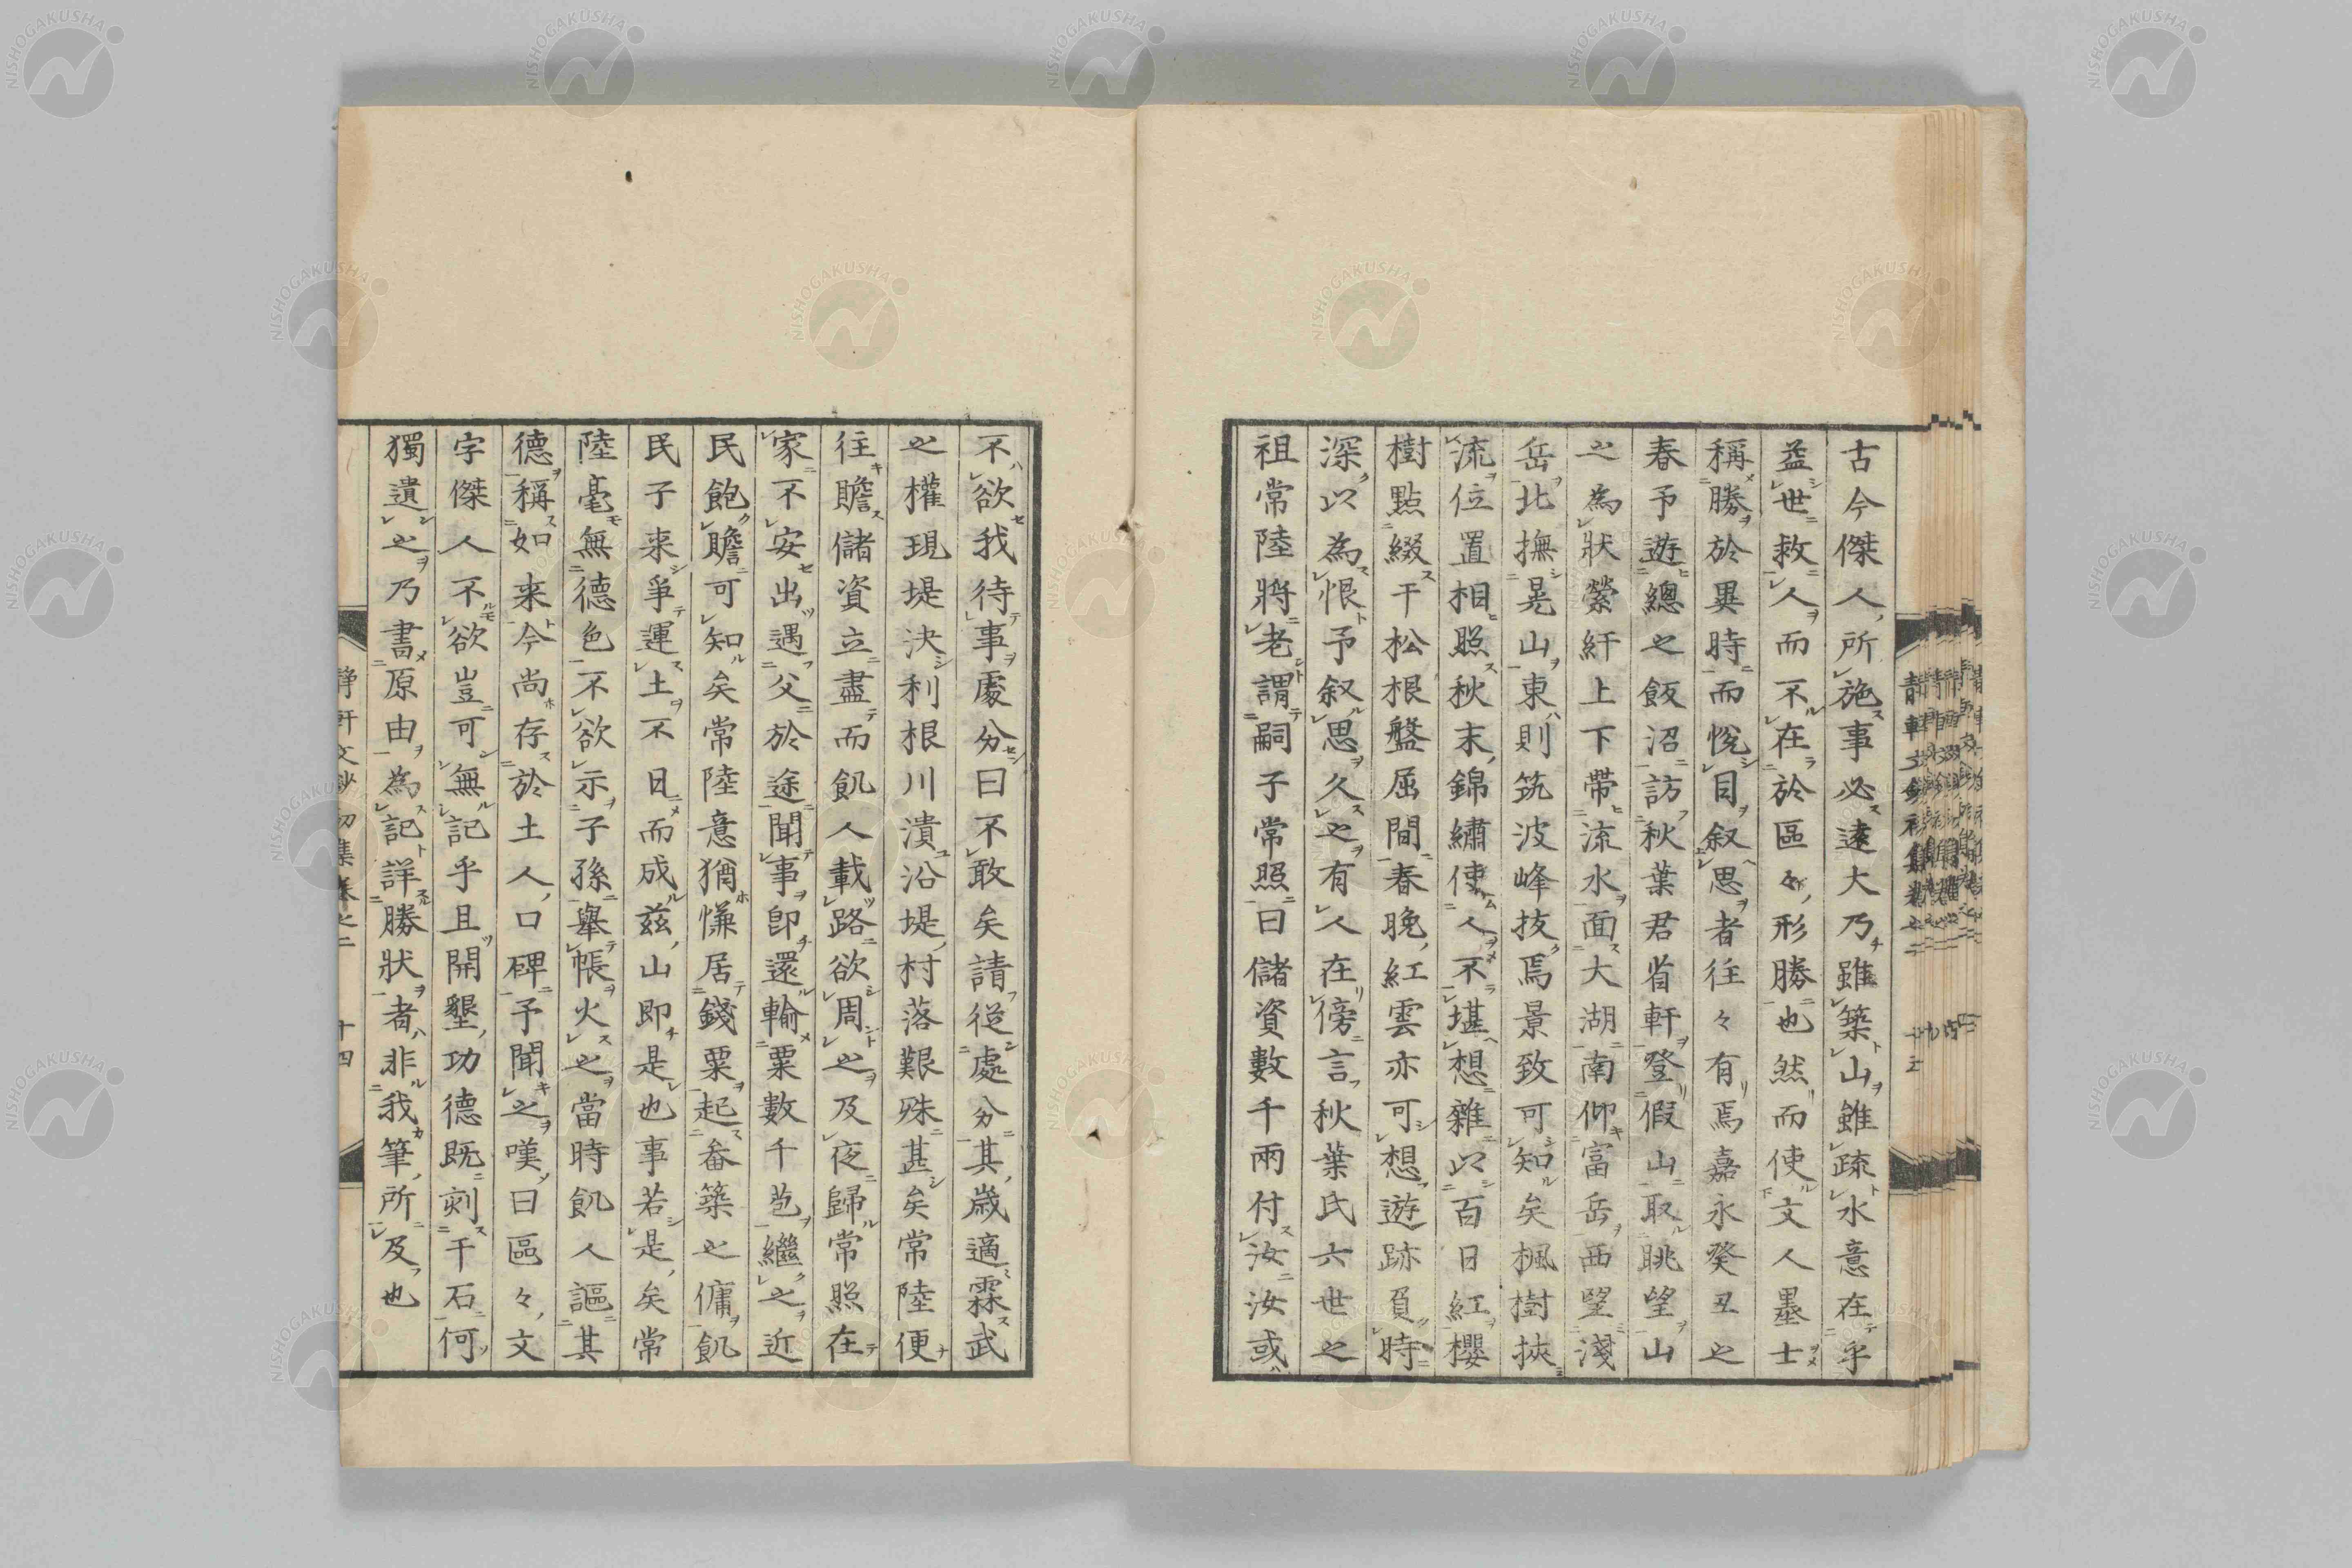 古今傑人所施事必遠大乃雖築山雖疏水意在乎
益世救人而不在於區々形勝也然而使文人墨士
稱勝於異時而悅目叙思者往々有焉嘉永癸丑之
春予遊總之飯沼訪秋葉君省軒登假山取眺望山
之為狀縈紆上下帶流水面大湖南仰富岳西望淺
岳北撫晃山東則筑波峰抜焉景致可知矣楓樹挾
流位置相照秋末錦繡使人不堪想雜以百日紅櫻
樹點綴干松根盤屈間春晚紅雲亦可想遊跡負時
深以為恨予叙思久之有人在傍言秋葉氏六世之
祖常陸將老謂嗣子常照曰儲資數千兩付汝汝或
不欲我待事處分曰不敢矣請從處分其歲適霖武
之權現堤決利根川潰沿堤村落艱殊甚矣常陸便
往贍儲資立盡而飢人載路欲周之及夜歸常照在
家不安出遇父於途聞事即還輸粟數千苞繼之近
民飽贍可知矣常陸意猶慊居錢粟起畚築之傭飢
民子来爭運土不日而成茲山即是也事若是矣常
陸毫無德色不欲示子孫舉帳火之當時飢人謳其
德稱如来今尚存於土人口碑予聞之嘆曰區々文
字傑人不欲豈可無記乎且開墾功德既刻干石何
獨遺之乃書原由為記詳勝狀者非我筆所及也
靜軒文鈔初集卷之二 十四
NISHOGAKUSHA